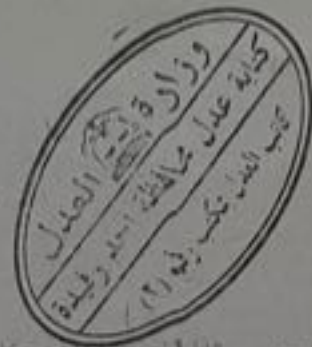 وزارة العدل
كتابة عدل محافظة احد رفيدة
كاتب العدل مكتب رقم (٢)